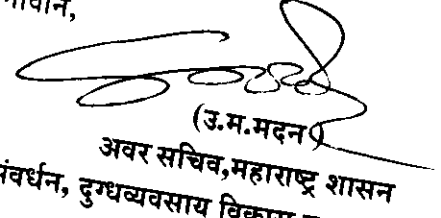 (उ.म.मदन)
अवर सचिव,महाराष्ट्र शासन
दुग्धव्यवसाय विकास